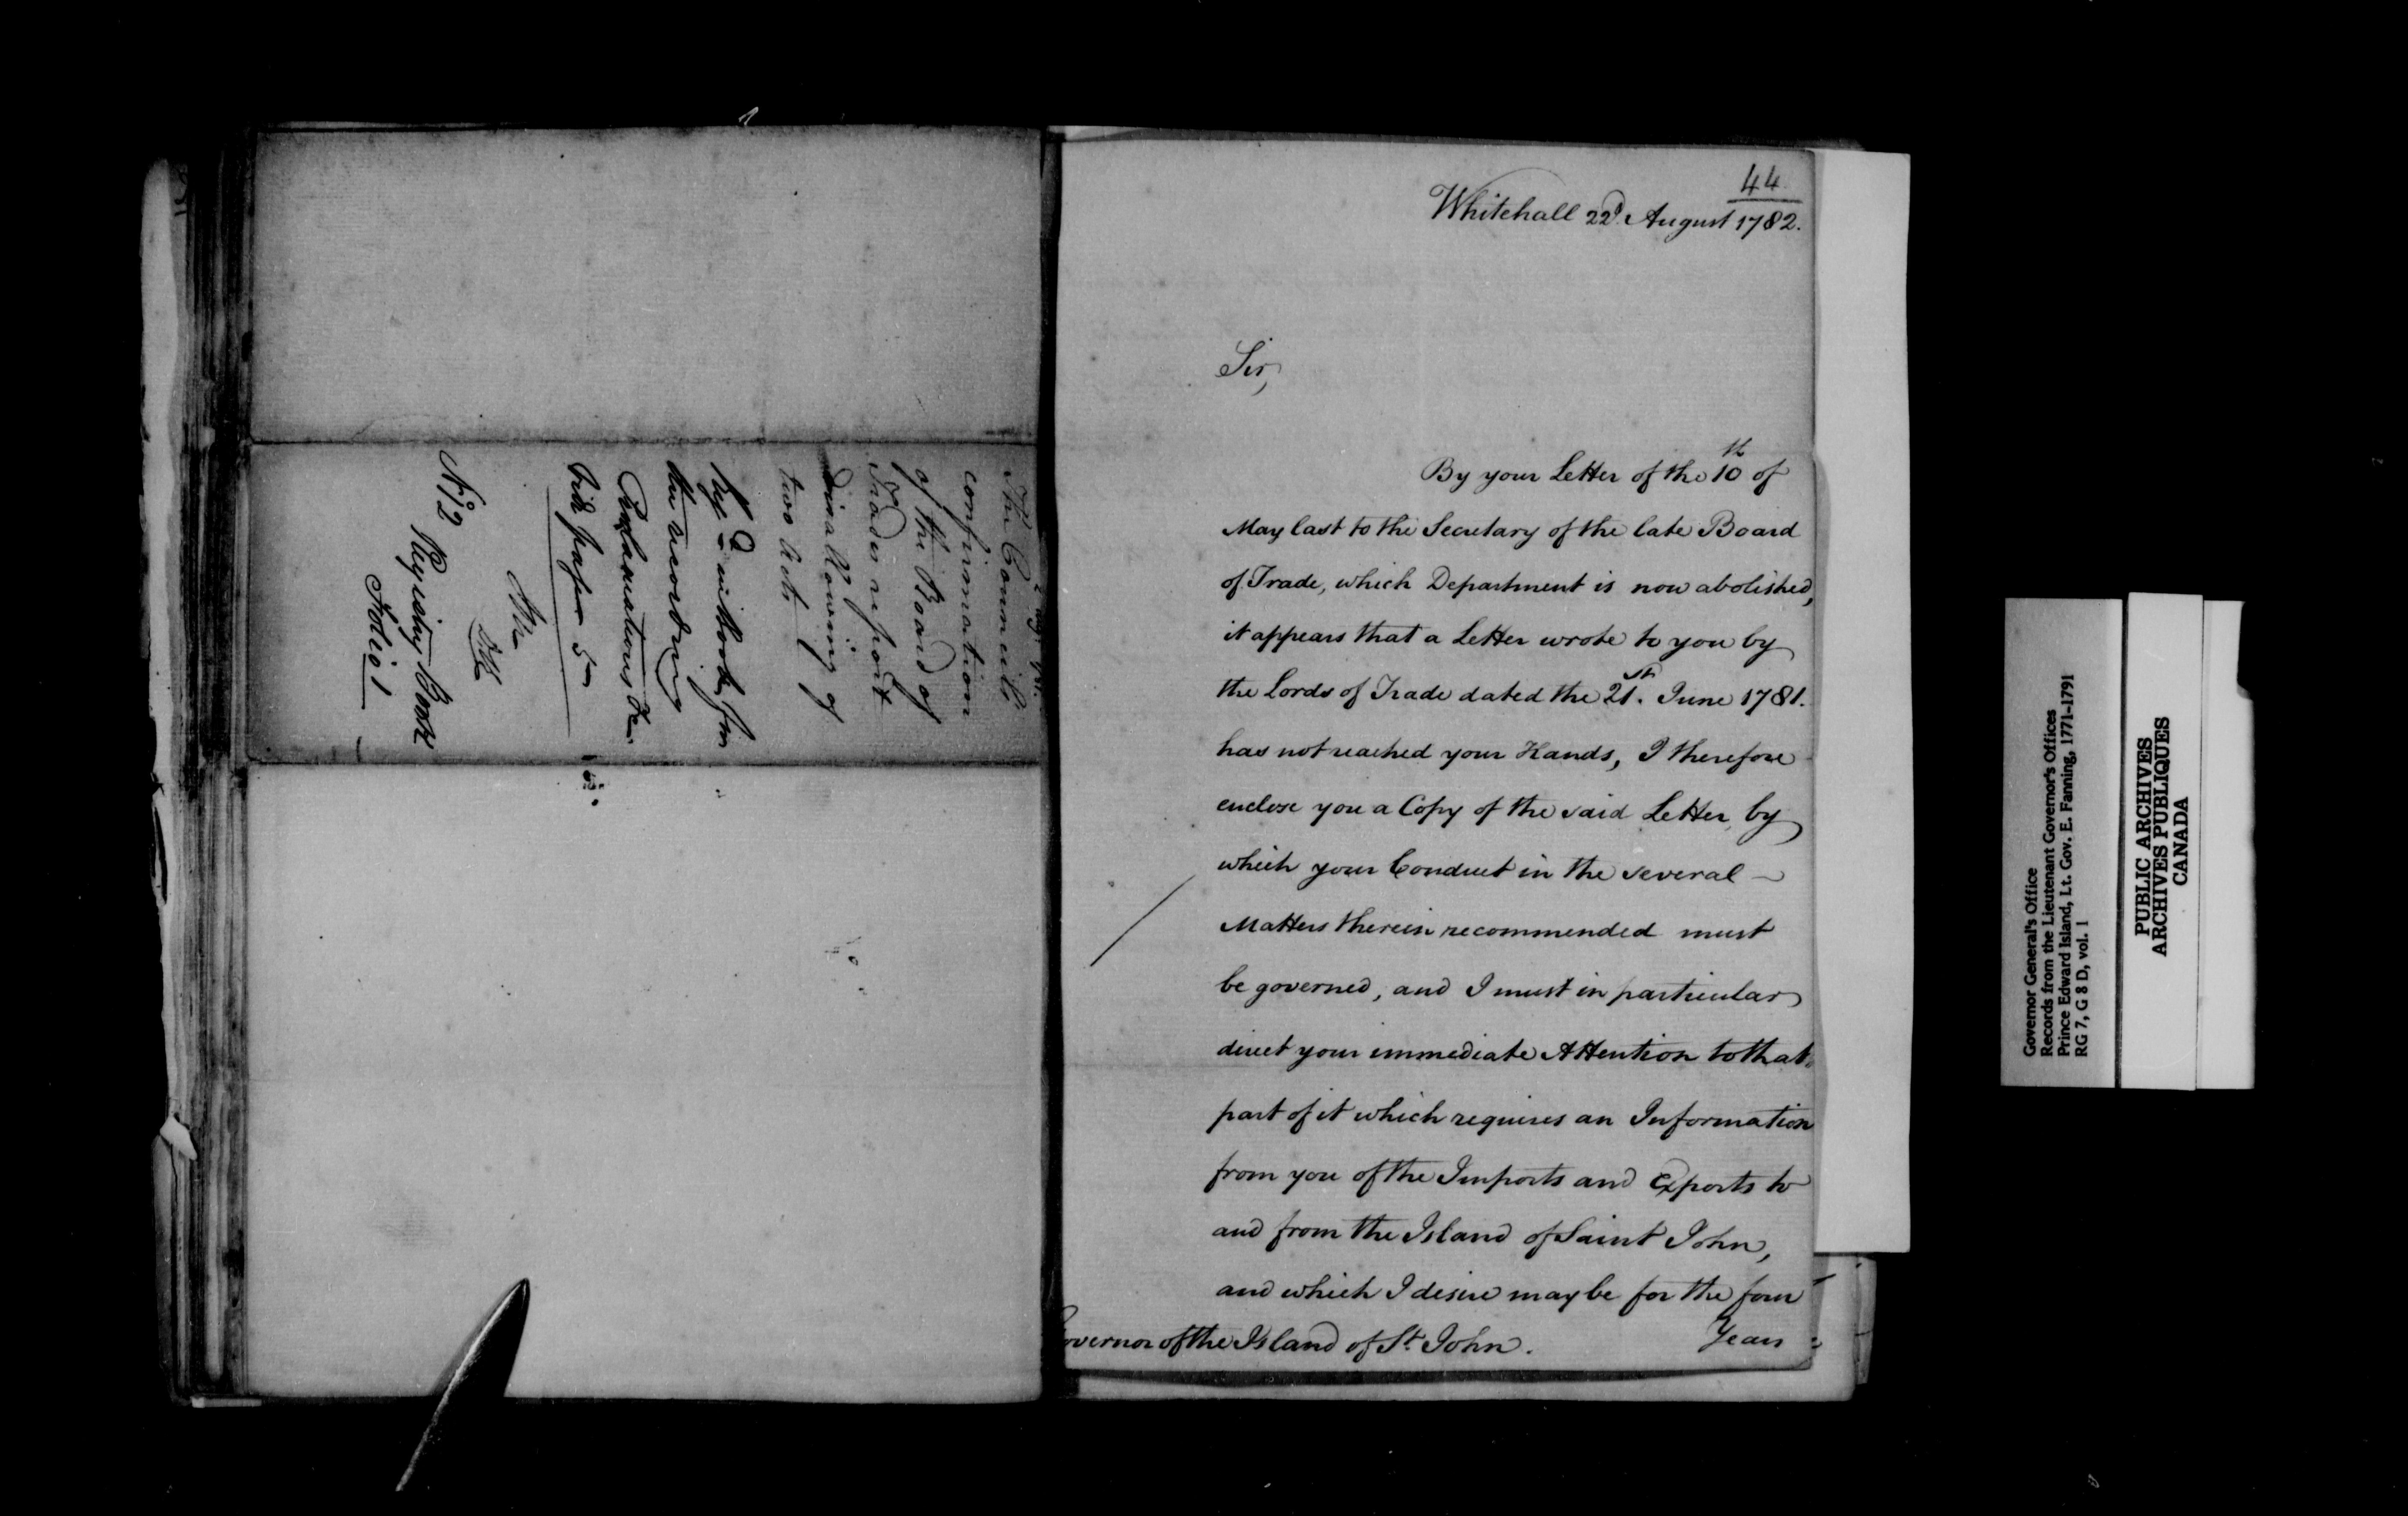 The Council's
confirmation
of the Board of
Trades report
disallowing of
two Acts
N.º 2 Register Book
Folio 1
44
Whitehall 22.d August 1782.
Sir,
By your Letter of the 10th of
May last to the Secretary of the late Board
of Trade, which Department is now abolished,
it appears that a Letter wrote to you by
the Lords of Trade dated the 21.st June 1781.
has not reached your Hands, I therefore
enclose you a Copy of the said Letter, by
which your Conduct in the several
Matters therein recommended must
be governed, and I must in particular
direct your immediate Attention to that
part of it which requires an Information
from you of the Imports and Exports to
and from the Island of Saint John,
and which I desire may be for the four
Years
Governor of the Island of S.t John.
Governor General's Office
Records from the Lieutenant Governor's Offices
Prince Edward Island, Lt. Gov. E. Fanning, 1771-1791
RG 7, G 8 D, vol. 1
PUBLIC ARCHIVES
ARCHIVES PUBLIQUES
CANADA